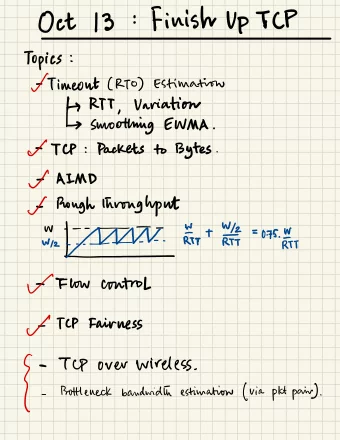 Oct 13 : Finish Up TCP
Topics :
- Timeout (RTO) Estimation
↳ RTT, Variation
↳ smoothing EWMA.
- TCP : Packets to Bytes.
- AIMD
- Rough Throughput
W
W/2
W/RTT + W/2/RTT = 0.75. W/RTT
- Flow control
- TCP Fairness
- TCP over wireless.
- Bottleneck bandwidth estimation (via pkt pair).